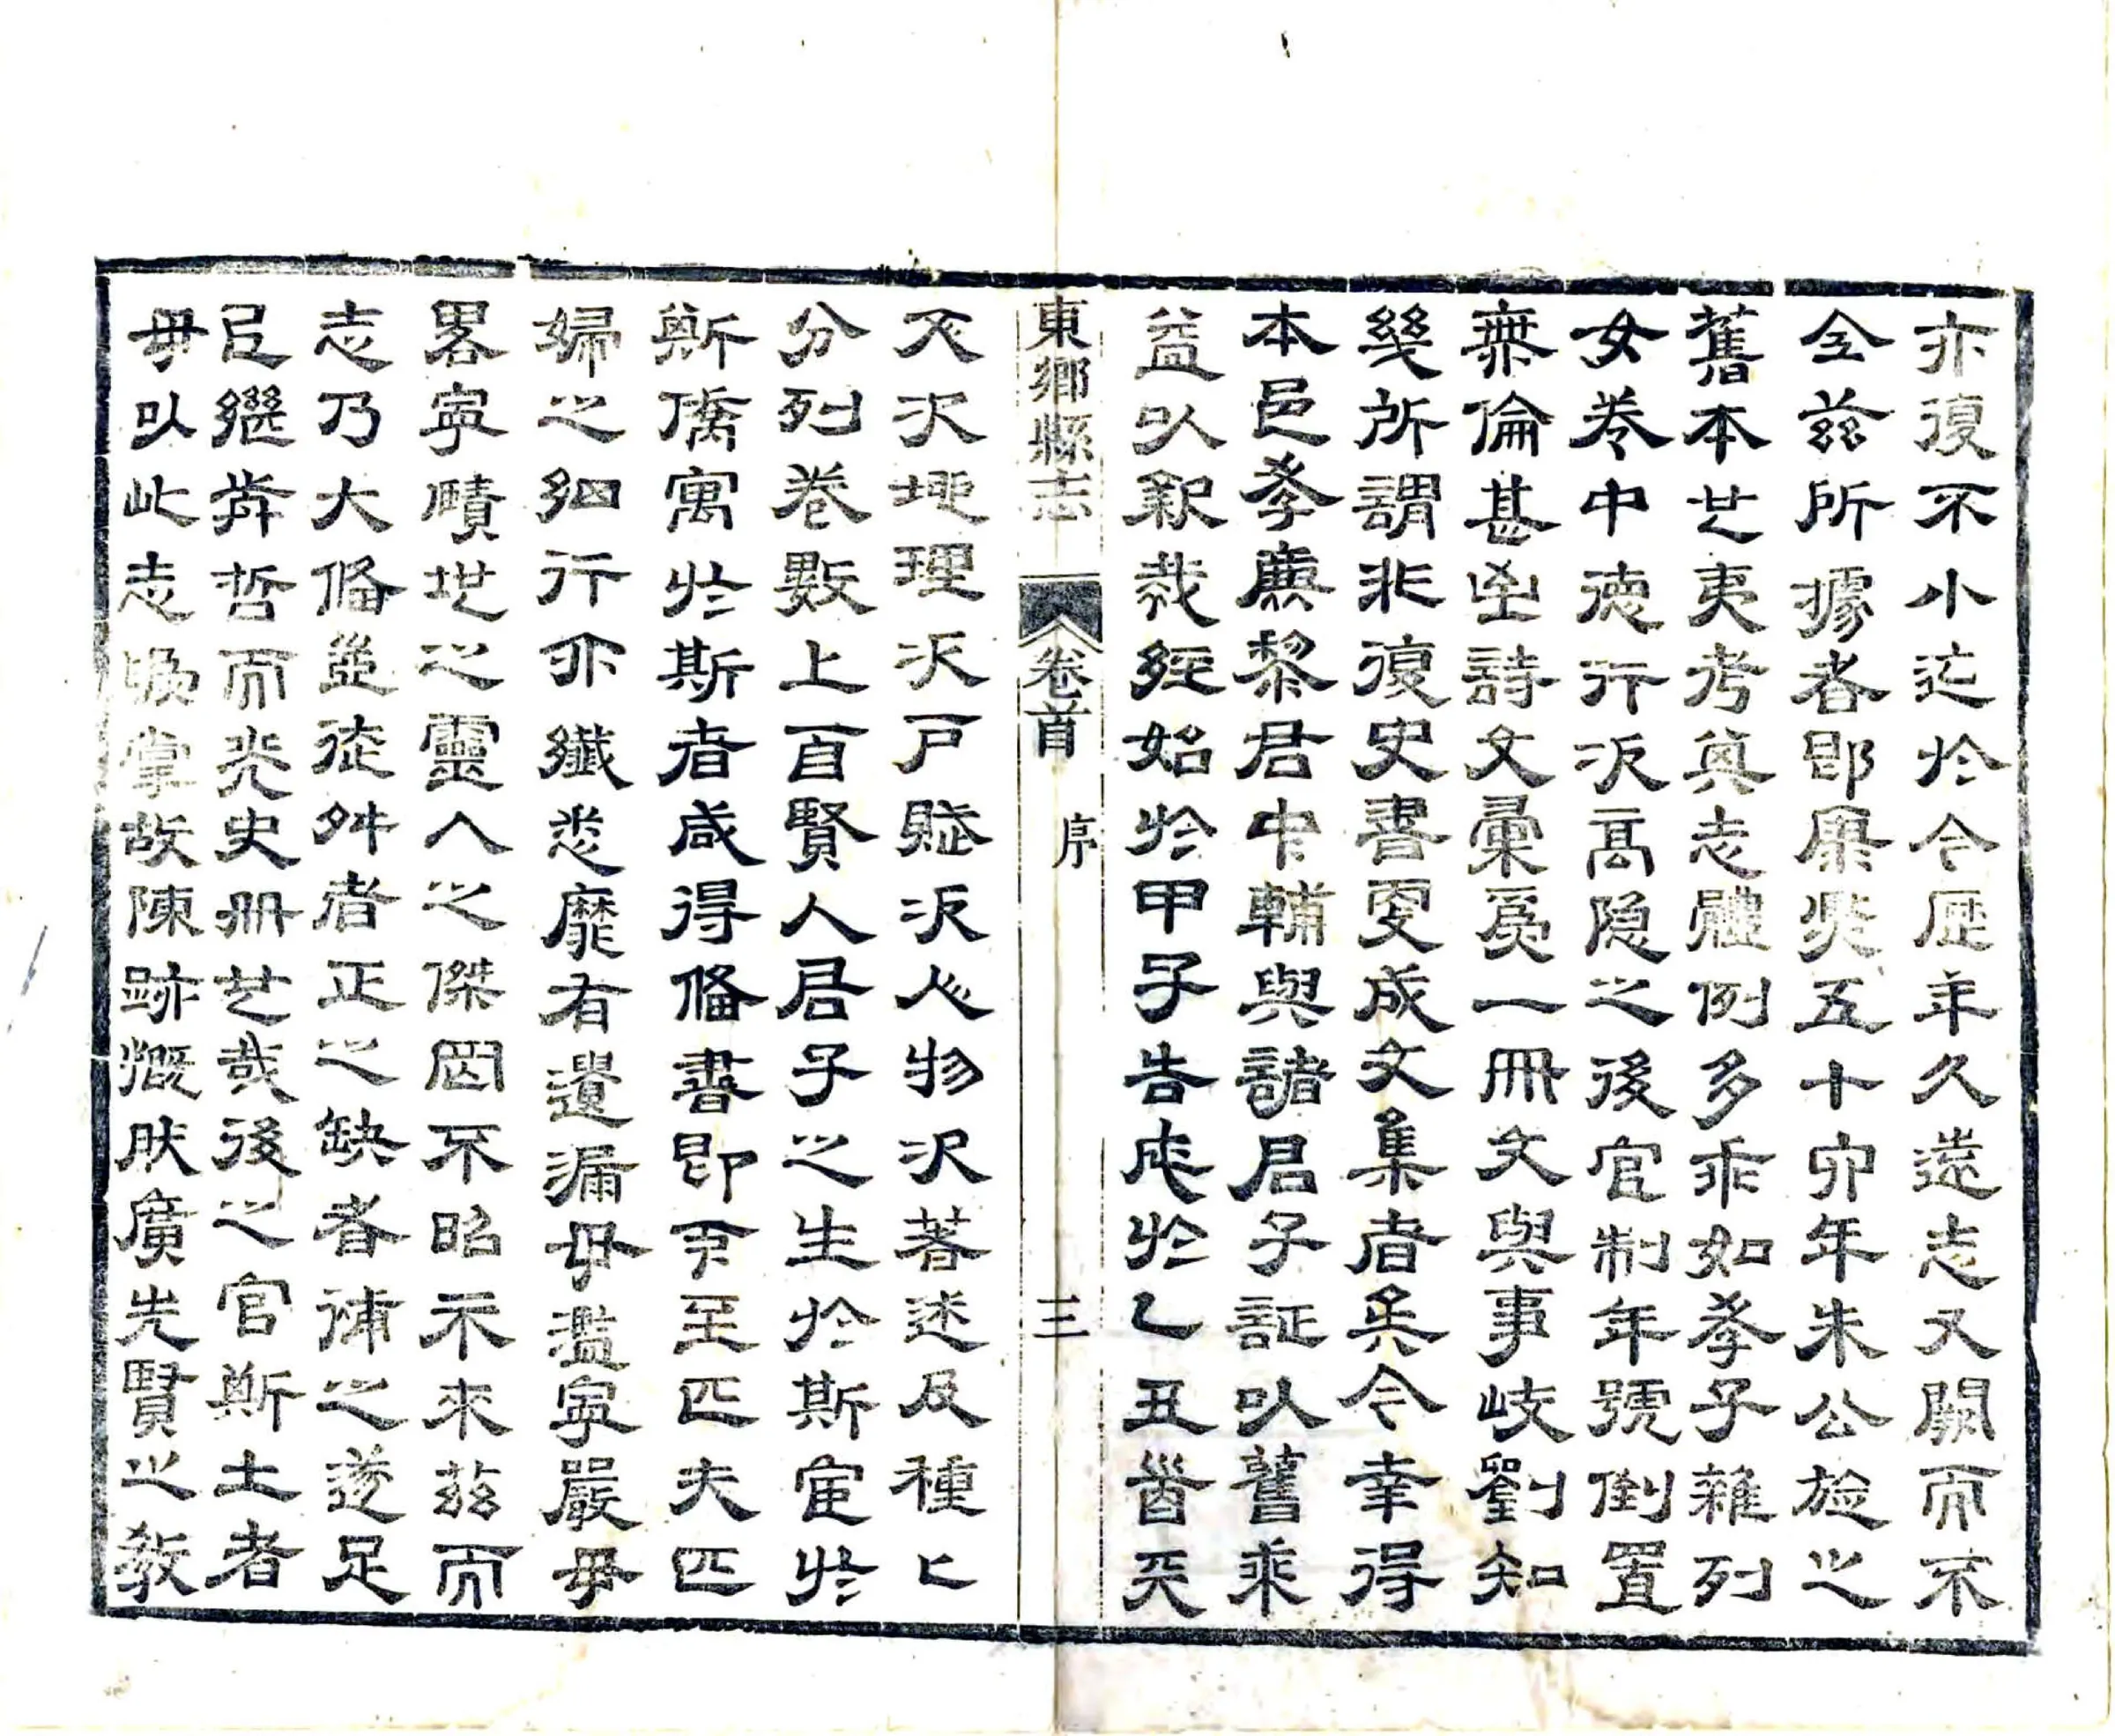 亦復不小迄於今歷年久遠志又闕而不
全茲所據者即康熙五十卯年朱公旌之
舊本其夷考與志體例多乖如孝子雜列
女卷中德行次高隐之後官制年號倒置
無倫甚至詩文彙為一冊文與事歧劉知
幾所謂非復史書更成文集者矣今幸得
本邑孝廉黎君中輔與諸君子証以舊乘
益以新裁經始於甲子告成於乙丑首天
文次地理次戶賦次人物次著述及種匕
分列卷數上自賢人君子之生於斯宦於
斯僑寓於斯者咸得備書即下至匹夫匹
婦之細行亦纖悉靡有遺漏毋濫寧嚴毋
畧寧賾地之靈人之傑固不昭示來茲而
志乃大備並從舛者正之缺者補之遂足
以繼前哲而光史冊其哉後之官斯土者
毋以此志職掌故陳跡慨然廣先賢之教
東鄉縣志
卷首
序
三